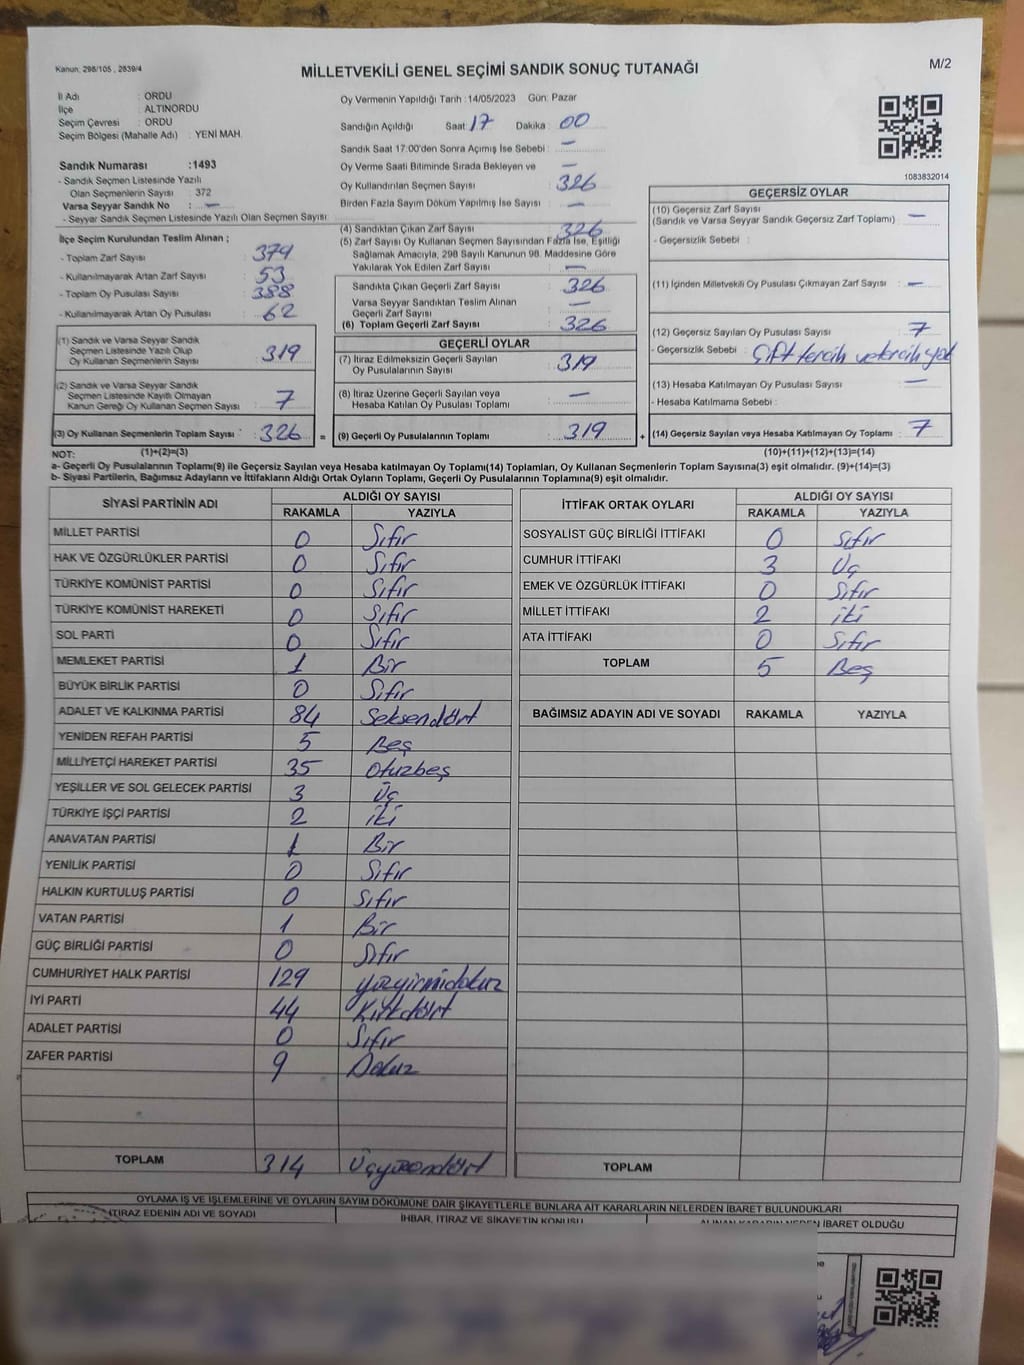 Kanun: 298/105 , 2839/4
MİLLETVEKİLİ GENEL SEÇİMİ SANDIK SONUÇ TUTANAĞI
M/2
İl Adı : ORDU
İlçe : ALTINORDU
Seçim Çevresi : ORDU
Seçim Bölgesi (Mahalle Adı) : YENİ MAH.
Sandık Numarası :1493
- Sandık Seçmen Listesinde Yazılı
Olan Seçmenlerin Sayısı : 372
Varsa Seyyar Sandık No : —
- Seyyar Sandık Seçmen Listesinde Yazılı Olan Seçmen Sayısı:
Oy Vermenin Yapıldığı Tarih :14/05/2023 Gün: Pazar
Sandığın Açıldığı Saat: 17 Dakika : 00
Sandık Saat 17:00'den Sonra Açımış İse Sebebi : —
Oy Verme Saati Bitiminde Sırada Bekleyen ve —
Oy Kullandırılan Seçmen Sayısı : 326
Birden Fazla Sayım Döküm Yapılmış İse Sayısı : —
1083832014
İlçe Seçim Kurulundan Teslim Alınan ;
- Toplam Zarf Sayısı : 379
- Kullanılmayarak Artan Zarf Sayısı : 53
- Toplam Oy Pusulası Sayısı : 388
- Kullanılmayarak Artan Oy Pusulası : 62
(1) Sandık ve Varsa Seyyar Sandık
Seçmen Listesinde Yazılı Olup
Oy Kullanan Seçmenlerin Sayısı : 319
(2) Sandık ve Varsa Seyyar Sandık
Seçmen Listesinde Kayıtlı Olmayan
Kanun Gereği Oy Kullanan Seçmen Sayısı : 7
(3) Oy Kullanan Seçmenlerin Toplam Sayısı : 326 =
(4) Sandıktan Çıkan Zarf Sayısı : 326
(5) Zarf Sayısı Oy Kullanan Seçmen Sayısından Fazla İse, Eşitliği
Sağlamak Amacıyla, 298 Sayılı Kanunun 98. Maddesine Göre
Yakılarak Yok Edilen Zarf Sayısı : —
Sandıkta Çıkan Geçerli Zarf Sayısı : 326
Varsa Seyyar Sandıktan Teslim Alınan
Geçerli Zarf Sayısı : —
(6) Toplam Geçerli Zarf Sayısı : 326
GEÇERLİ OYLAR
(7) İtiraz Edilmeksizin Geçerli Sayılan
Oy Pusulalarının Sayısı : 319
(8) İtiraz Üzerine Geçerli Sayılan veya
Hesaba Katılan Oy Pusulası Toplamı : —
(9) Geçerli Oy Pusulalarının Toplamı : 319 +
GEÇERSİZ OYLAR
(10) Geçersiz Zarf Sayısı
(Sandık ve Varsa Seyyar Sandık Geçersiz Zarf Toplamı) : —
- Geçersizlik Sebebi :
(11) İçinden Milletvekili Oy Pusulası Çıkmayan Zarf Sayısı : —
(12) Geçersiz Sayılan Oy Pusulası Sayısı : 7
- Geçersizlik Sebebi : Çift tercih ve tercih yok
(13) Hesaba Katılmayan Oy Pusulası Sayısı : —
- Hesaba Katılmama Sebebi :
(14) Geçersiz Sayılan veya Hesaba Katılmayan Oy Toplamı : 7
NOT: (1)+(2)=(3) (10)+(11)+(12)+(13)=(14)
a- Geçerli Oy Pusulalarının Toplamı(9) ile Geçersiz Sayılan veya Hesaba katılmayan Oy Toplamı(14) Toplamları, Oy Kullanan Seçmenlerin Toplam Sayısına(3) eşit olmalıdır. (9)+(14)=(3)
b- Siyasi Partilerin, Bağımsız Adayların ve İttifakların Aldığı Ortak Oyların Toplamı, Geçerli Oy Pusulalarının Toplamına(9) eşit olmalıdır.
SİYASİ PARTİNİN ADI ALDIĞI OY SAYISI
RAKAMLA YAZIYLA
MİLLET PARTİSİ 0 Sıfır
HAK VE ÖZGÜRLÜKLER PARTİSİ 0 Sıfır
TÜRKİYE KOMÜNİST PARTİSİ 0 Sıfır
TÜRKİYE KOMÜNİST HAREKETİ 0 Sıfır
SOL PARTİ 0 Sıfır
MEMLEKET PARTİSİ 1 Bir
BÜYÜK BİRLİK PARTİSİ 0 Sıfır
ADALET VE KALKINMA PARTİSİ 84 Seksendört
YENİDEN REFAH PARTİSİ 5 Beş
MİLLİYETÇİ HAREKET PARTİSİ 35 Otuzbeş
YEŞİLLER VE SOL GELECEK PARTİSİ 3 Üç
TÜRKİYE İŞÇİ PARTİSİ 2 iki
ANAVATAN PARTİSİ 1 Bir
YENİLİK PARTİSİ 0 Sıfır
HALKIN KURTULUŞ PARTİSİ 0 Sıfır
VATAN PARTİSİ 1 Bir
GÜÇ BİRLİĞİ PARTİSİ 0 Sıfır
CUMHURİYET HALK PARTİSİ 129 yüzyirmidokuz
İYİ PARTİ 44 Kırkdört
ADALET PARTİSİ 0 Sıfır
ZAFER PARTİSİ 9 Dokuz
TOPLAM 314 Üçyüzondört
İTTİFAK ORTAK OYLARI ALDIĞI OY SAYISI
RAKAMLA YAZIYLA
SOSYALİST GÜÇ BİRLİĞİ İTTİFAKI 0 Sıfır
CUMHUR İTTİFAKI 3 Üç
EMEK VE ÖZGÜRLÜK İTTİFAKI 0 Sıfır
MİLLET İTTİFAKI 2 iki
ATA İTTİFAKI 0 Sıfır
TOPLAM 5 Beş
BAĞIMSIZ ADAYIN ADI VE SOYADI RAKAMLA YAZIYLA
TOPLAM
OYLAMA İŞ VE İŞLEMLERİNE VE OYLARIN SAYIM DÖKÜMÜNE DAİR ŞİKAYETLERLE BUNLARA AİT KARARLARIN NELERDEN İBARET BULUNDUKLARI
İTİRAZ EDENİN ADI VE SOYADI İHBAR, İTİRAZ VE ŞİKAYETİN KONUSU ALINAN KARARIN NEDEN İBARET OLDUĞU